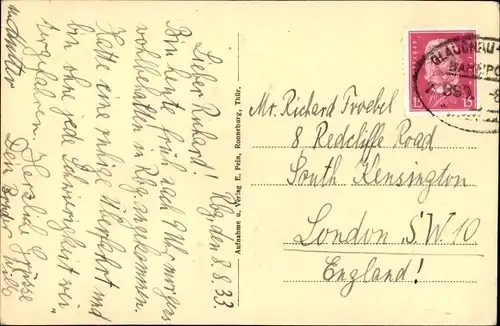 Lieber Richard! Rbg. den 8.8.33.
Bin heute früh nach 9 Uhr morgens
wohlbehalten in Rbg. angekommen.
Hatte eine ruhige Überfahrt und
bin ohne jede Schwierigkeit von
eingefahren. Herzliche Grüsse
Dein Bruder Willi
Aufnahme u. Verlag E. Pein, Ronneburg, Thür.
GLAUCHAU-
BAHNPO
15 15
Mr. Richard Troebel
8 Redcliffe Road
South Kensington
London S.W. 10
England!